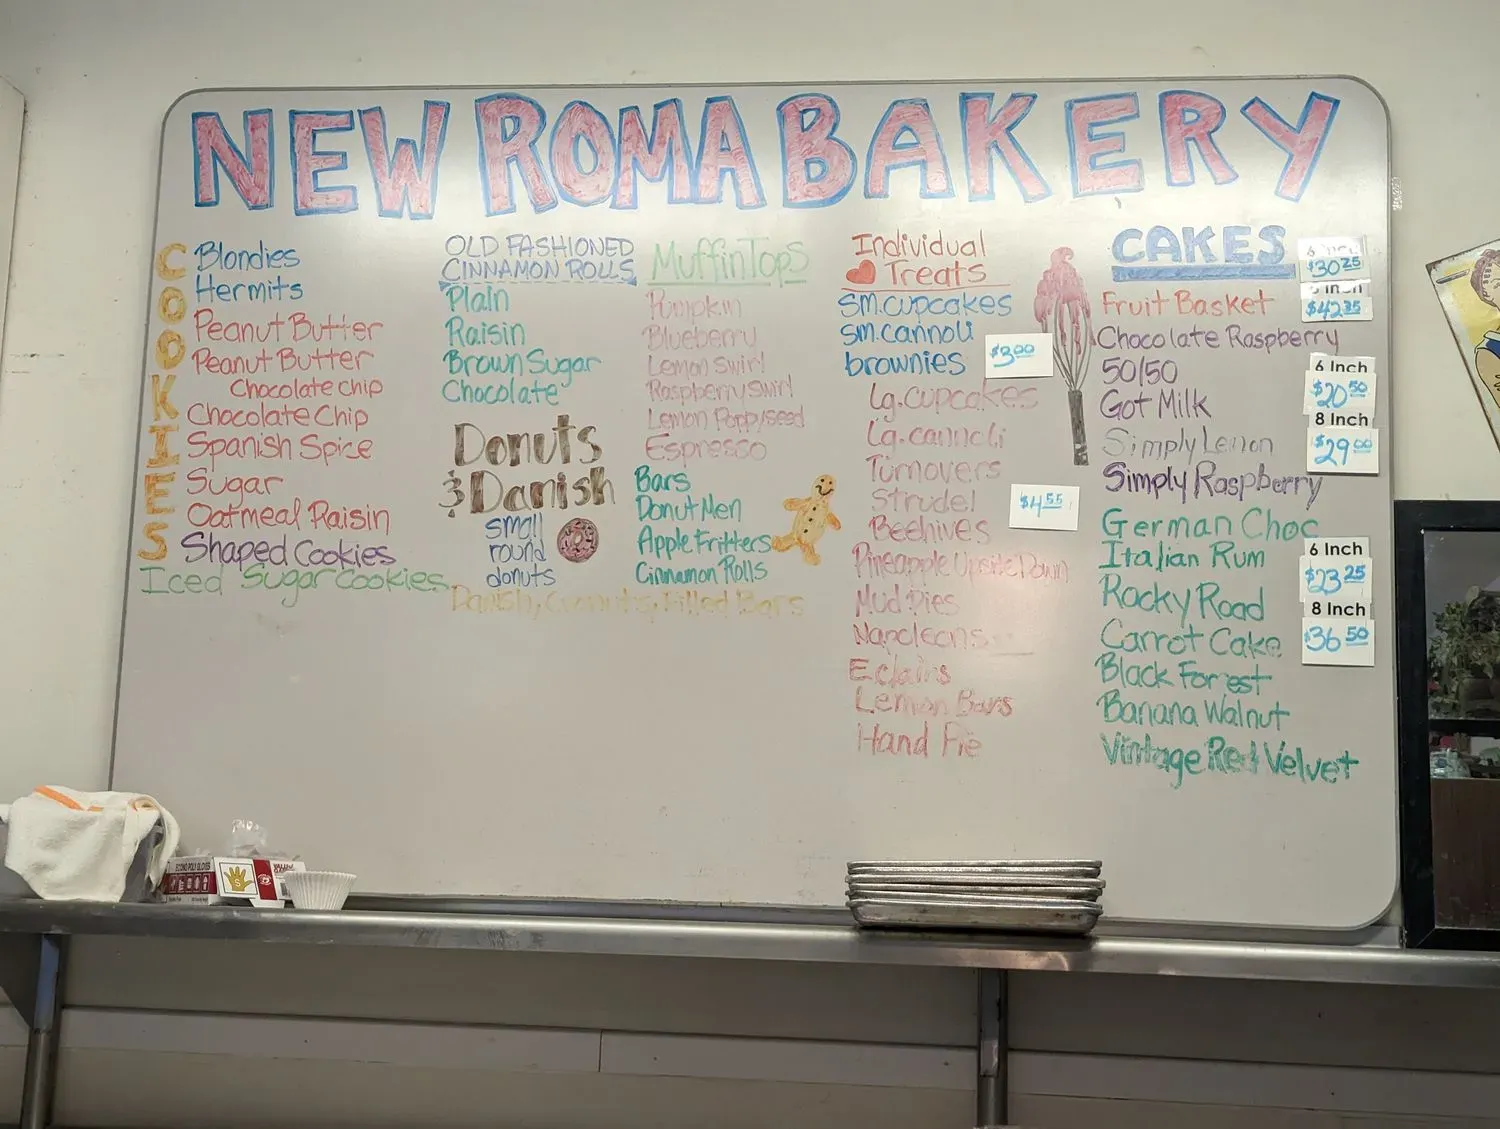 NEW ROMA BAKERY
COOKIES
Blondies
Hermits
Peanut Butter
Peanut Butter
Chocolate chip
Chocolate Chip
Spanish Spice
Sugar
Oatmeal Raisin
Shaped Cookies
Iced Sugar Cookies
OLD FASHIONED
CINNAMON ROLLS
Plain
Raisin
Brown Sugar
Chocolate
Donuts
& Danish
small
round
donuts
Muffin Tops
Pumpkin
Blueberry
Lemon Swirl
Raspberry Swirl
Lemon Poppyseed
Espresso
Bars
Donut Men
Apple Fritters
Cinnamon Rolls
Danish, Cronuts, Filled Bars
Individual
Treats
sm. cupcakes
sm. cannoli
brownies
$3.00
Lg. cupcakes
Lg. cannoli
Turnovers
Strudel
$4.55
Beehives
Pineapple Upside Down
Mud Pies
Napoleons
Eclairs
Lemon Bars
Hand Pie
CAKES
6 Inch
$30.25
Fruit Basket
Inch
$42.35
Chocolate Raspberry
50/50
6 Inch
$20.50
Got Milk
8 Inch
Simply Lemon
$29.00
Simply Raspberry
German Choc
Italian Rum
6 Inch
$23.25
Rocky Road
8 Inch
Carrot Cake
$36.50
Black Forest
Banana Walnut
Vintage Red Velvet
ECONO POLY GLOVES